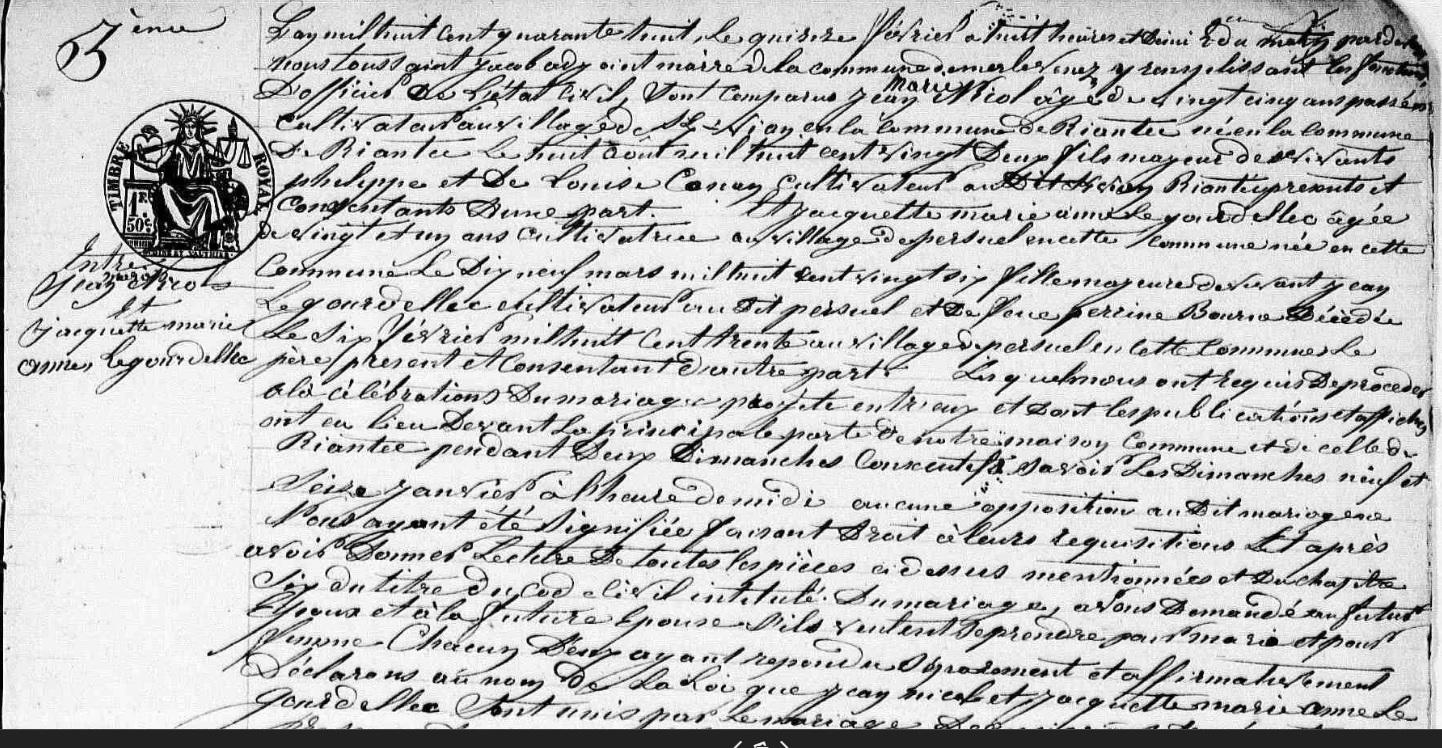 5ème
TIMBRE ROYAL
1 FR
50 c
Entre
Jean
Et
jacquette marie
anne Legourdellec
L'an mil huit cent quarante huit, Le quinze février à huit heures et Demi du matin par devant
nous toussaint jacob adjoint maire de la commune de merlevenez y remplissant les fonctions
D'officier De L'état Civil, Sont Comparus jean marie âgé de vingt cinq ans passés
Cultivateur au village de en la Commune De Riantec né en la Commune
De Riantec Le huit Août mil huit cent vingt Deux fils majeur de vivants
philippe et De Louise Conan Cultivateur au Dit Riantec présents et
Consentants D'une part. Et jacquette marie anne Le gourdellec âgée
de vingt et un ans cultivatrice au village de persuel en cette Commune née en cette
Commune Le Dix neuf mars mil huit cent vingt six fille majeure de vivant jean
Le gourdellec cultivateur au Dit persuel et De feue perrine Bourne Décédée
Le Six février mil huit Cent trente au village de persuel en cette Commune Le
père présent et Consentant D'autre part. Lesquels nous ont requis De procéder
a la célébrations Du mariage projeté entr'eux et Dont les publications et affiches
ont eu Lieu Devant La principale porte De notre maison Commune et de celle de
Riantec pendant Deux Dimanches Consecutifs savoir Les Dimanches neuf et
Seize janvier à l'heure de midi aucune opposition au Dit mariage ne
Nous ayant été Signifiée faisant Droit à leurs requisitions Et après
avoir Donner Lecture De toutes les pièces ci dessus mentionnées et Du chapitre
Six du titre du Cod civil intitulé. Du mariage, avons Demandé au futur
Epoux et à la future Epouse s'ils veulent Se prendre pour mari et pour
femme Chacun D'eux ayant repondu Séparement et affirmativement
Déclarons au nom De La Loi que jean nicol et jacquette marie anne Le
gourdellec Sont unis par Le mariage